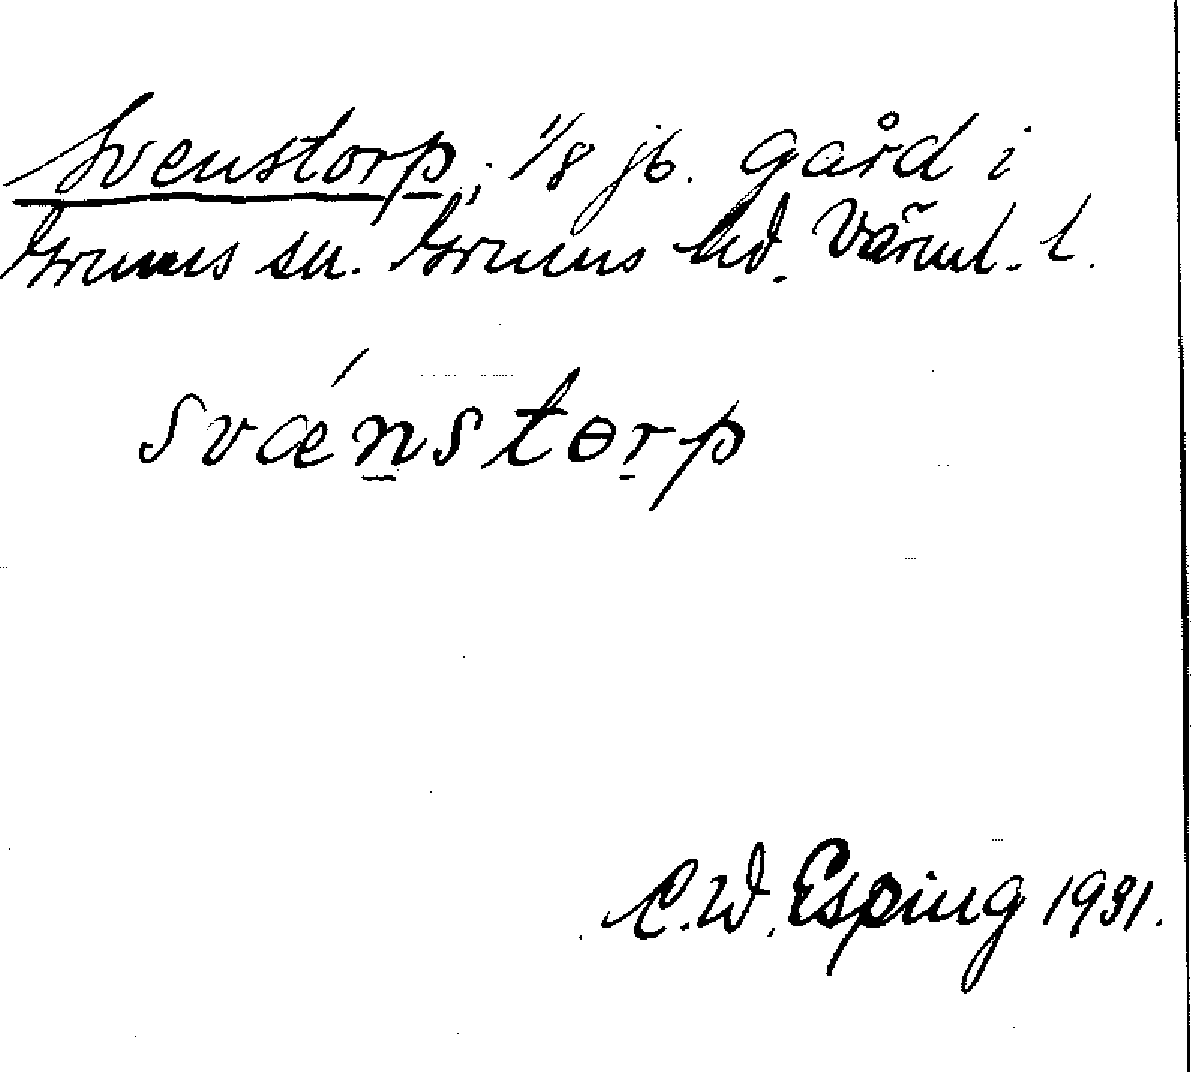 Svenstorp; 1/8 jb. gård i
Grums sn. Grums hd. Värml. l.
svæ´n̲stɵr̲p
C.W. Esping 1931.